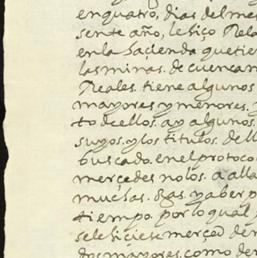 en quatro, dias del me
sente año, le hiço Rela
en la haçienda que tie
las minas. de cuencam
Reales. tiene algunos
mayores y menores.
to dellos. ay algunos.
suyos. y los titulos. dell
buscado. en el protoco
merçedes no los. a alla
muchas. y aber p
tiempo. por lo qual
sele hiciese merçed de
dos mayores. como de